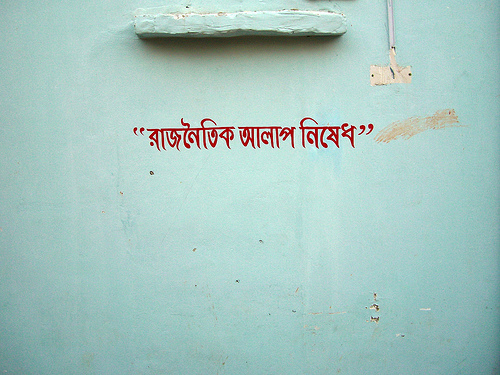 “রাজনৈতিক আলাপ নিষেধ”